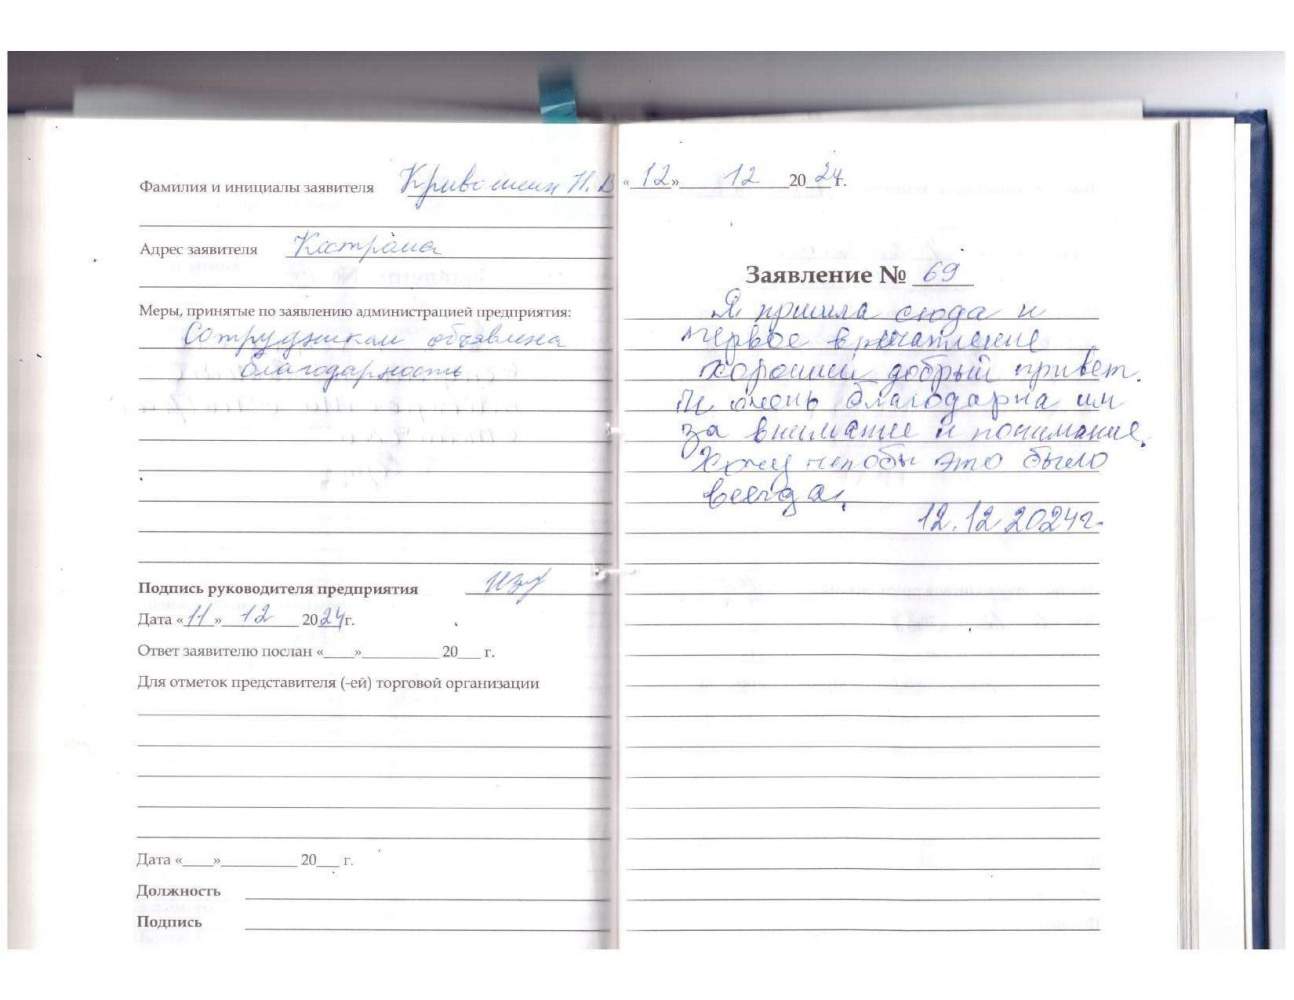 Фамилия и инициалы заявителя Кривошеин Н. В
Адрес заявителя Кострома
Меры, принятые по заявлению администрацией предприятия:
Сотрудникам объявлена
благодарность
Подпись руководителя предприятия
Дата «11» 12 2024г.
Ответ заявителю послан «___»__________ 20___ г.
Для отметок представителя (-ей) торговой организации
Дата «____»__________ 20___ г.
Должность
Подпись
«12» 12 2024г.
Заявление № 69
Я пришла сюда и
первое впечатление
хороший добрый привет.
Я очень благодарна им
за внимание и понимание.
Хочу чтобы это было
всегда.
12.12.2024г.